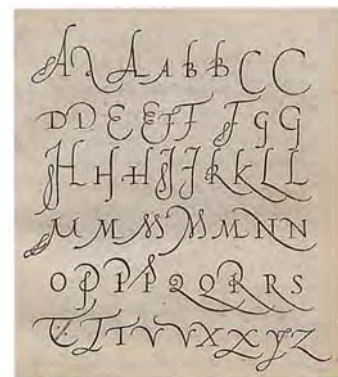 A A A B B C C
D D E E F F G G
H H H I J K K L L
M M M M M N N
O P P P Q Q R R S
T T T V V X X Y Z